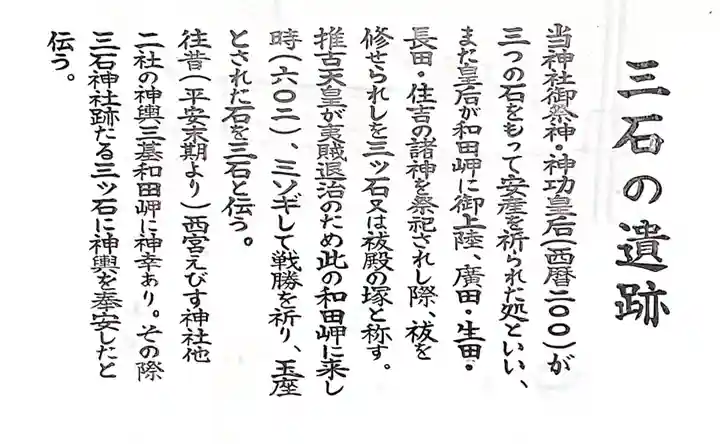 三石の遺跡
当神社御祭神・神功皇后(西暦二〇〇)が
三つの石をもって安産を祈られた処といい、
また皇后が和田岬に御上陸、廣田・生田・
長田・住吉の諸神を祭祀されし際、祓を
修せられしを三ツ石又は祓殿の塚と称す。
推古天皇が夷賊退治のため此の和田岬に来し
時(六〇二)、ミソギして戦勝を祈り、玉座
とされた石を三石と伝う。
往昔(平安末期より)西宮えびす神社他
二社の神輿三基和田岬に神幸あり。その際
三石神社跡たる三ツ石に神輿を奉安したと
伝う。